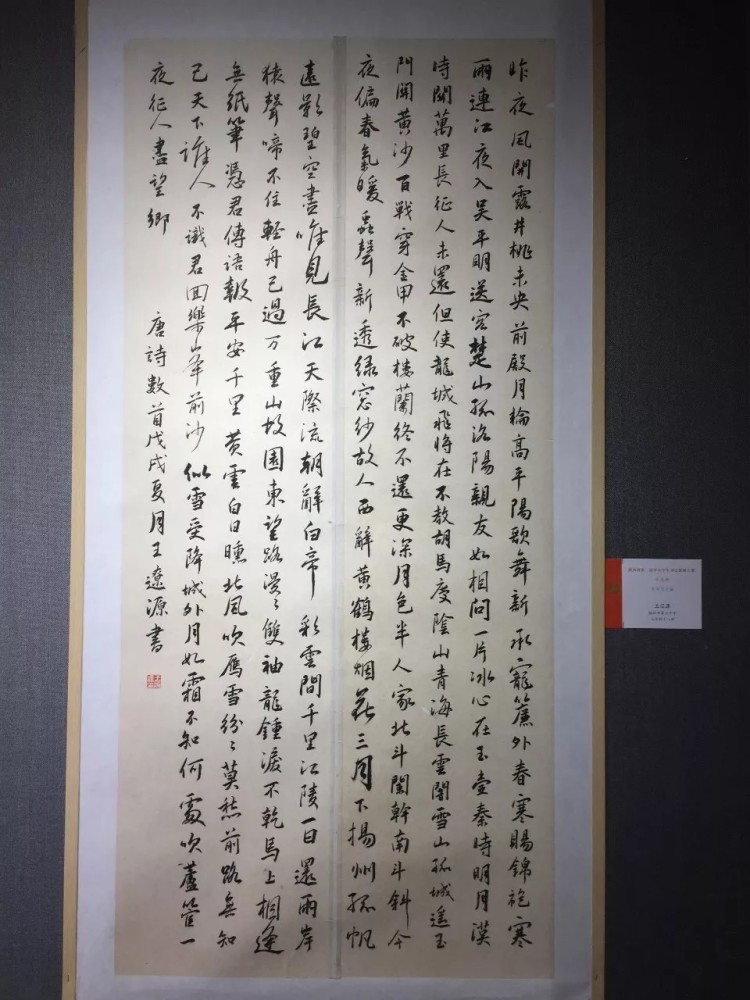 昨夜風開露井桃未央前殿月輪高平陽歌舞新承寵簾外春寒賜錦袍寒
雨連江夜入吴平明送客楚山孤洛陽親友如相問一片冰心在玉壺秦時明月漢
時關萬里長征人未還但使龍城飛將在不教胡馬度陰山青海長雲闇雪山孤城遥玉
門關黄沙百戰穿金甲不破樓蘭終不還更深月色半人家北斗闌幹南斗斜今
夜偏春氣暖蟲聲新透绿窓紗故人西辭黄鶴樓烟花三月下揚州孤帆
遠影碧空盡唯見長江天際流朝辭白帝彩雲間千里江陵一日還兩岸
猿聲啼不住輕舟已過万重山故園東望路漫々雙袖龍鍾淚不乾馬上相逢
無紙筆憑君傳語報平安千里黄雲白日曛北風吹雁雪紛々莫愁前路無知
己天下誰人不識君回樂峯前沙似雪受降城外月如霜不知何處吹蘆管一
夜征人盡望鄉
唐詩數首戊戌夏月王遼源書